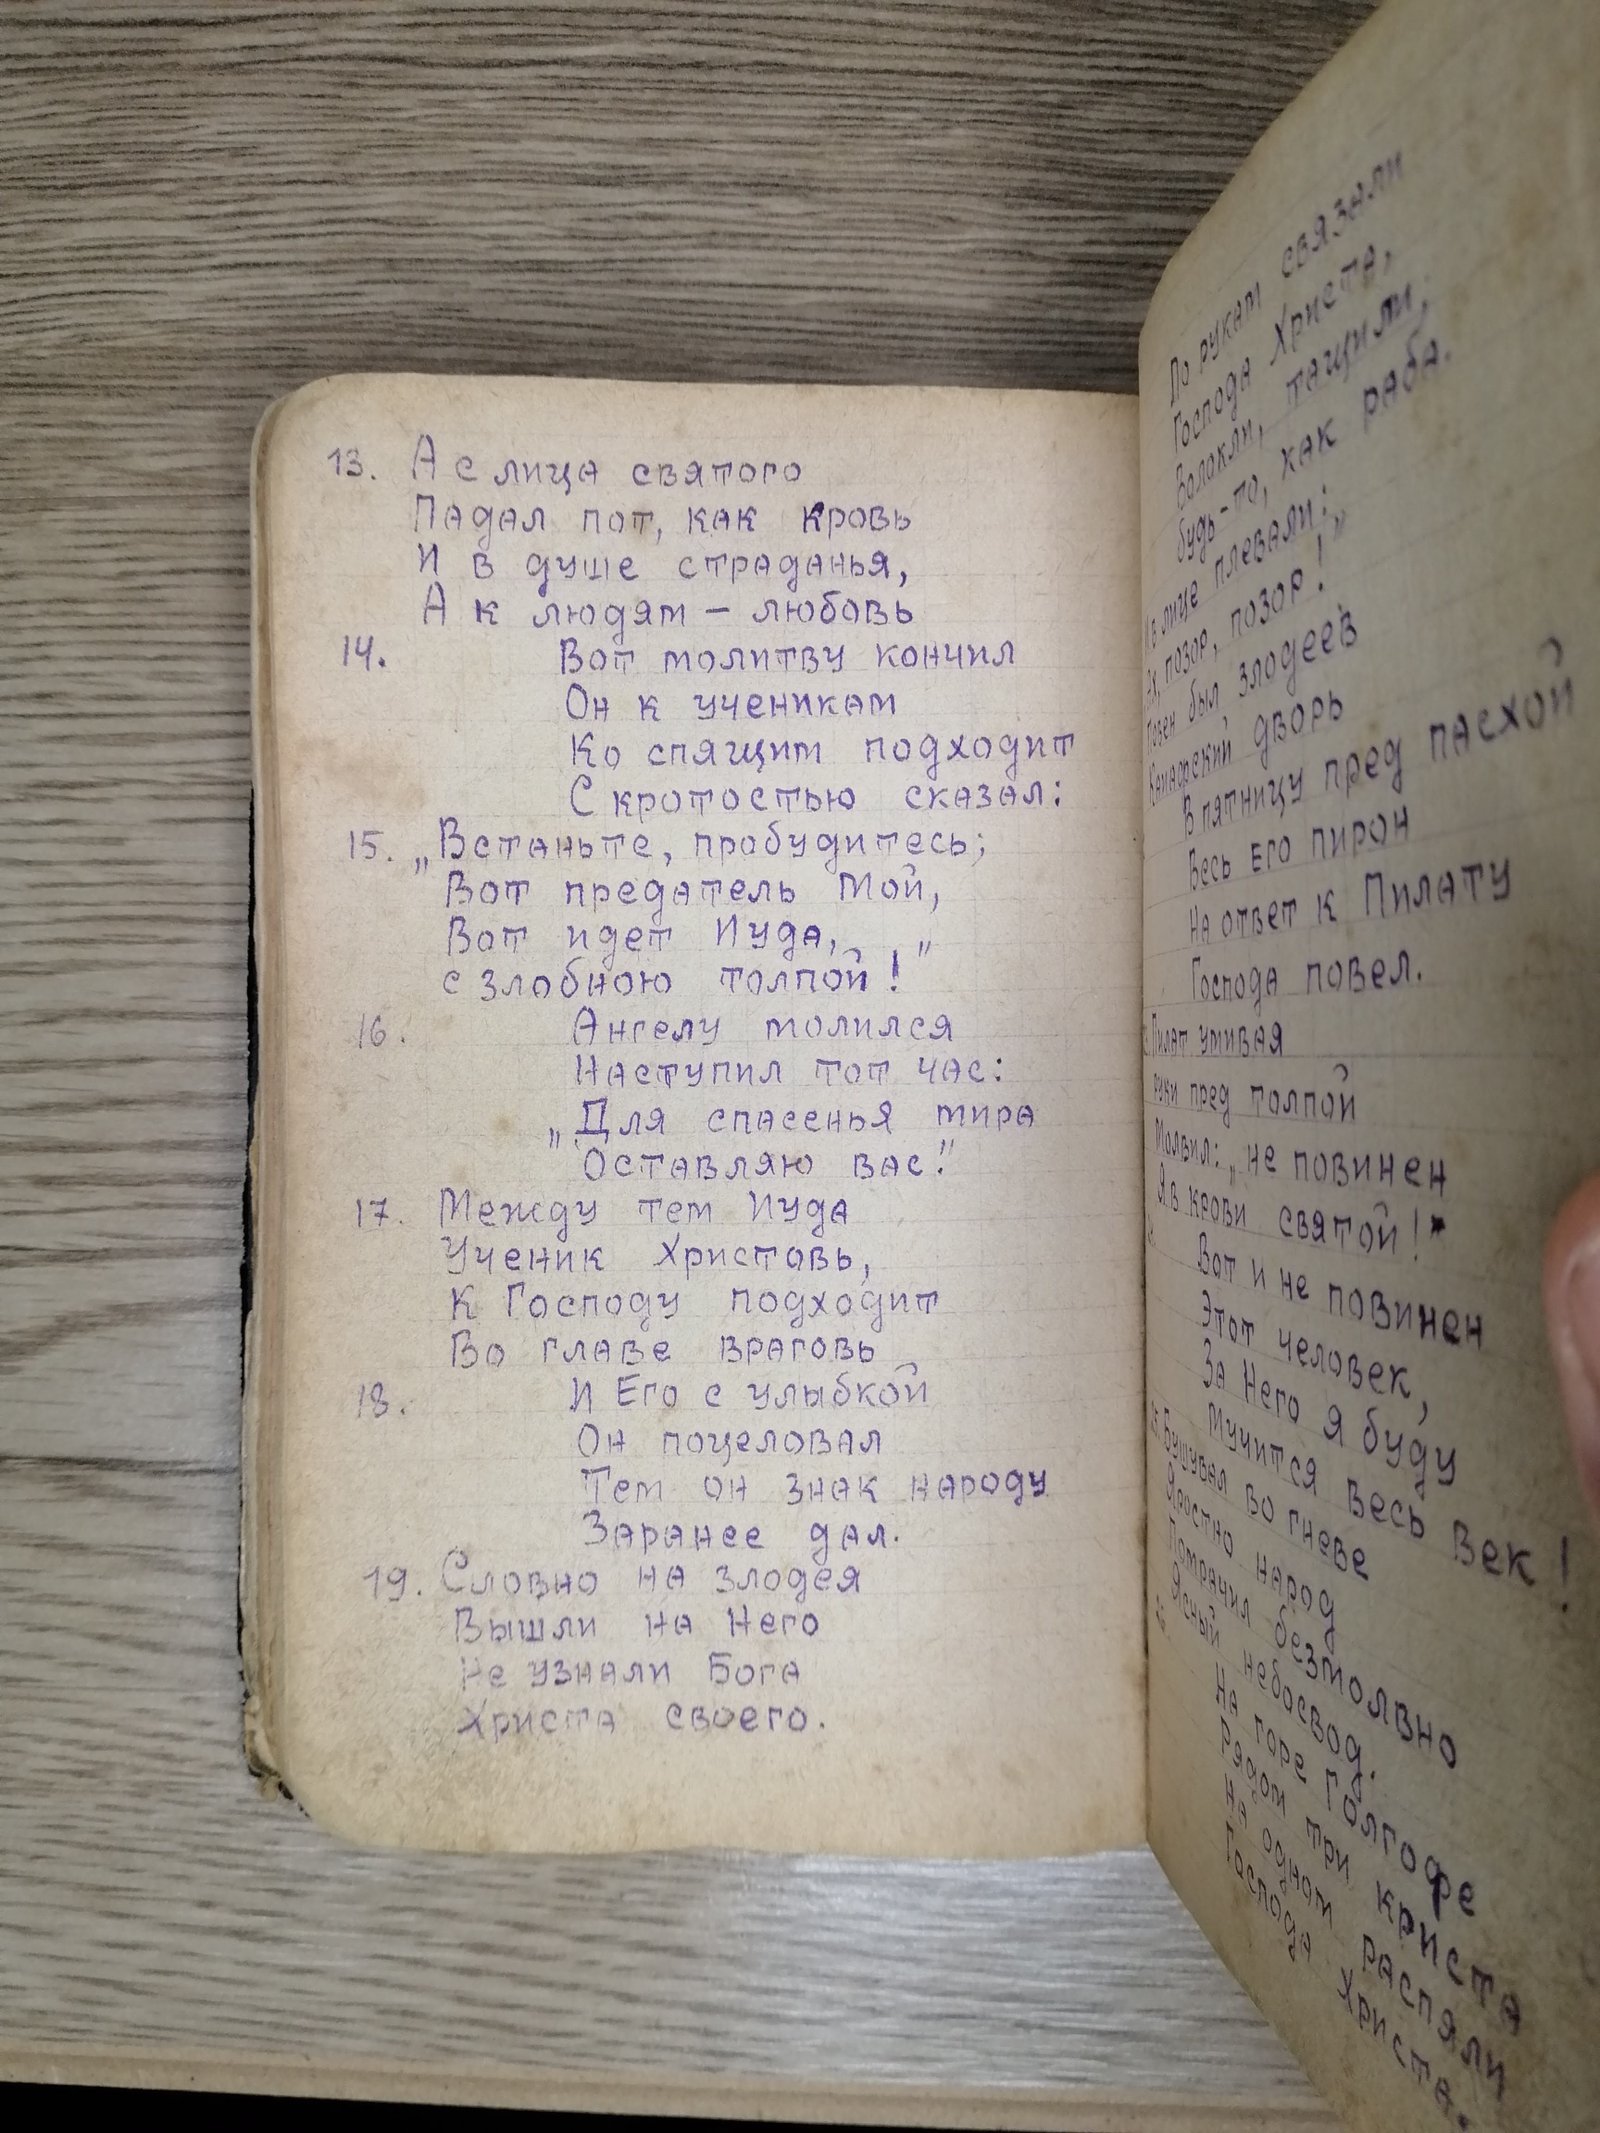 13. А с лица святого
Падал пот, как кровь
И в душе страданья,
А к людям — любовь
14. Вот молитву кончил
Он к ученикам
Ко спящим подходит
С кротостью сказал:
15. „Встаньте, пробудитесь;
Вот предатель Мой,
Вот идет Иуда,
с злобною толпой!"
16. Ангелу молился
Наступил тот час:
„Для спасенья мира
Оставляю вас."
17. Между тем Иуда
Ученик Христовь,
К Господу подходит
Во главе враговь
18. И Его с улыбкой
Он поцеловал
Тем он знак народу
Заранее дал.
19. Словно на злодея
Вышли на Него
Не узнали Бога
Христа своего.
По рукам связали
Господа Христа,
Волокли, тащили,
будь-то, как раба.
в лице плевали:
позор, позор!"
был злодеев
дворь
В пятницу пред пасхой
Весь Его пирон
На ответ к Пилату
Господа повел.
Пилат умивая
руки пред толпой
Молвил: „не повинен
Я в крови святой!"
Вот и не повинен
Этот человек,
За Него я буду
Мучится весь век!
Бушувал во гневе
Яростно народ
Помрачил безмолвно
Ясный небосвод.
На горе Голгофе
Рядом три криста
На одном распяли
Господа Христа.